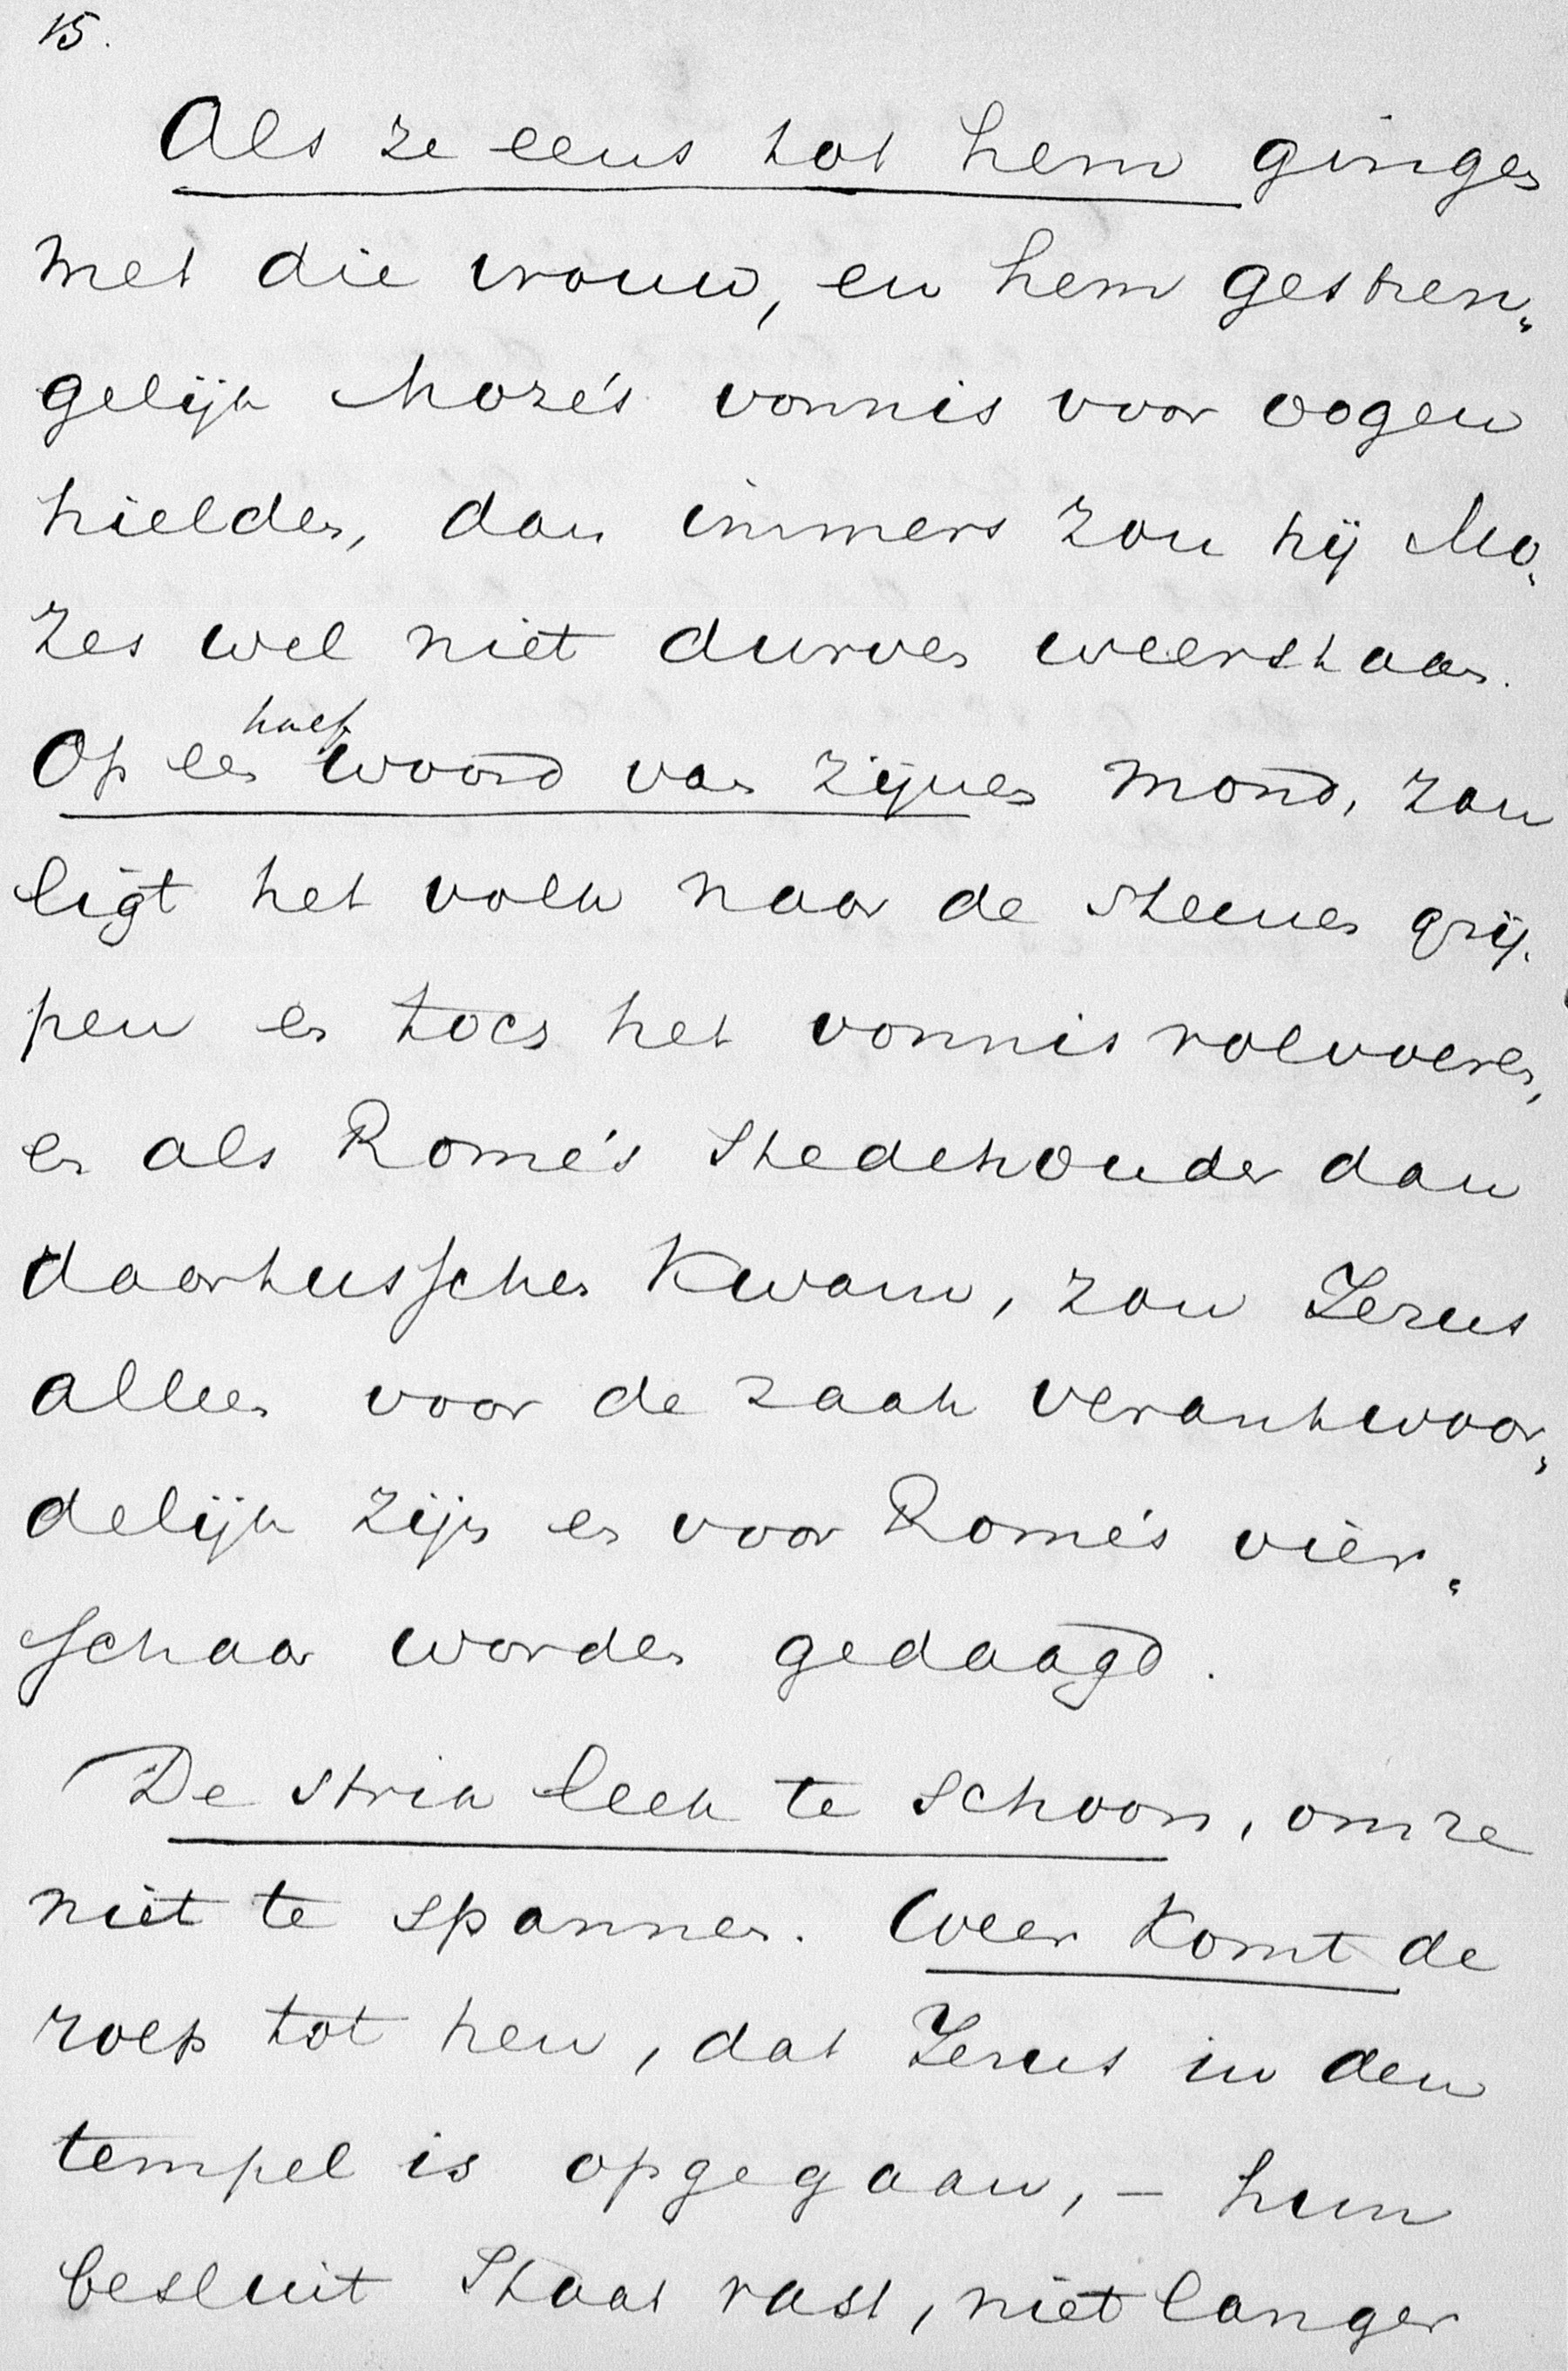 15.
Als ze eens tot hem gingen
met die vrouw, en hem gestren„
gelijk Moze's vonnis voor oogen
hielden, dan immers zou hij Mo„
zes wel niet durven weerstaan.
half
Op een woord van zijnen mond, zou
ligt het volk naar de steenen grij„
pen en toch het vonnis volvoeren,
en als Rome's Stedehouder dan
daartusschen kwam, zou Jezus
alleen voor de zaak verantwoor„
delijk zijn en voor Rome's vier„
schaar worden gedaagd.
De strik leek te schoon, om ze
niet te spannen. Weer komt de
roep tot hen, dat Jezus in den
tempel is opgegaan, – hun
besluit staat vast, niet langer